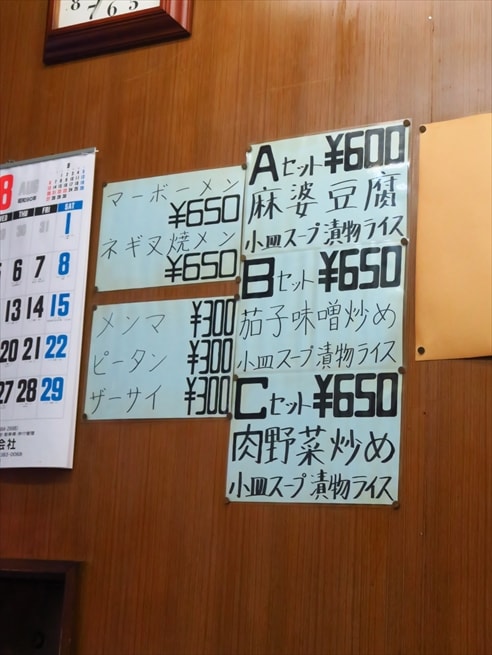 8 AUG
WED THU FRI SAT
1
5 6 7 8
13 14 15
20 21 22
27 28 29
会社
マーボーメン
¥650
ネギ叉焼メン
¥650
メンマ ¥300
ピータン ¥300
ザーサイ ¥300
Aセット ¥600
麻婆豆腐
小皿スープ漬物ライス
Bセット ¥650
茄子味噌炒め
小皿スープ漬物ライス
Cセット ¥650
肉野菜炒め
小皿スープ漬物ライス